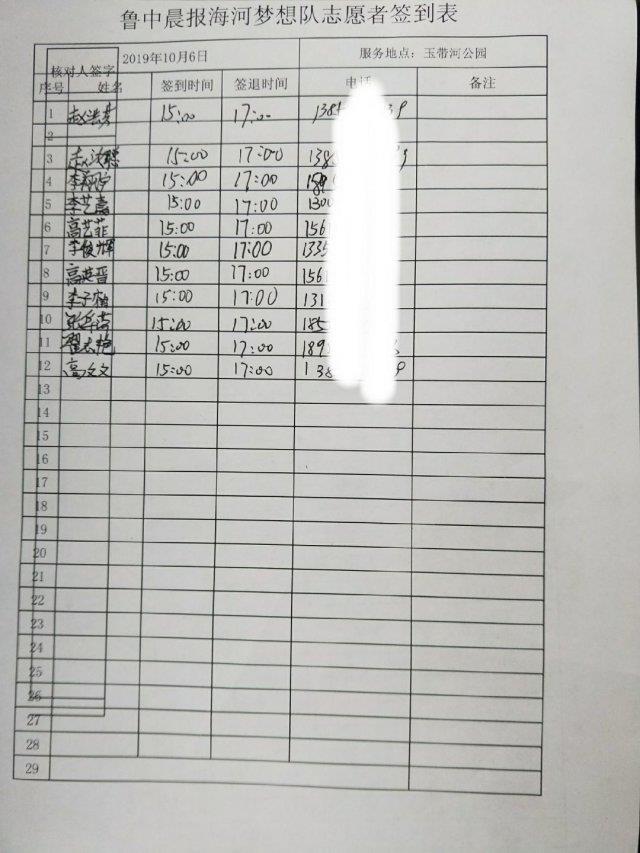 鲁中晨报海河梦想队志愿者签到表
2019年10月6日 服务地点：玉带河公园
核对人签字
序号 姓名 签到时间 签退时间 电话 备注
1 15:00 17:00 138
2
3 15:00 17:00 138
4 15:00 17:00
5 李艺嘉 15:00 17:00 130
6 高艺菲 15:00 17:00 156
7 李俊辉 15:00 17:00 1335
8 高英晋 15:00 17:00 156
9 李子 15:00 17:00 131
10 15:00 17:00 185
11 15:00 17:00 189
12 高文文 15:00 17:00 138
13
14
15
16
17
18
19
20
21
22
23
24
25
26
27
28
29